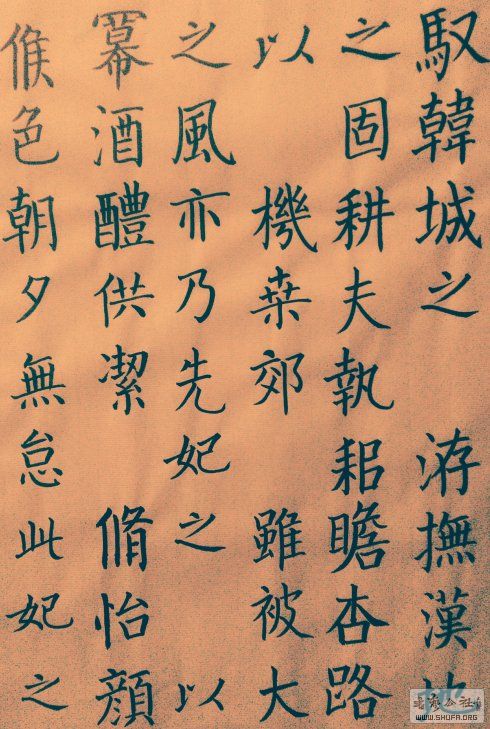 馭韓城之 洊撫漢
之固耕夫執耜瞻杏路
以 機桒郊 雖被大
之風亦乃先妃之 以
羃酒醴供潔 脩怡顔
候色朝夕無怠此妃之
WWW.SHUFA.ORG